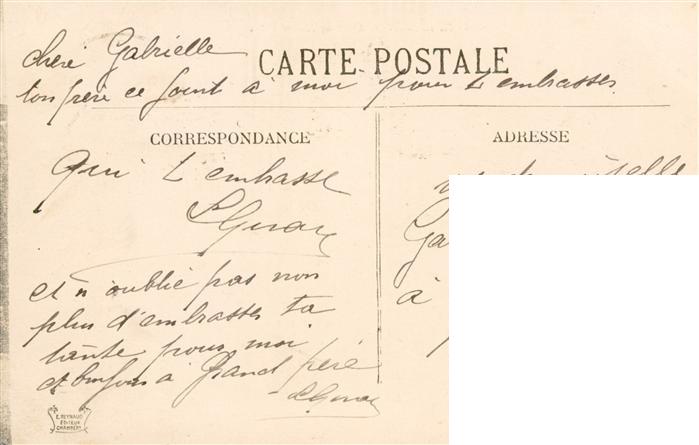 chère Gabrielle
CARTE POSTALE
ton frère ce joint à moi pour t'embrasser
CORRESPONDANCE
ADRESSE
Qui t'embrasse
et n'oublie pas non
plus d'embrasser ta
tante pour moi
et bonjour à Grand père
Ga
à
E. REYNAUD
EDITEUR
CHAMBERY